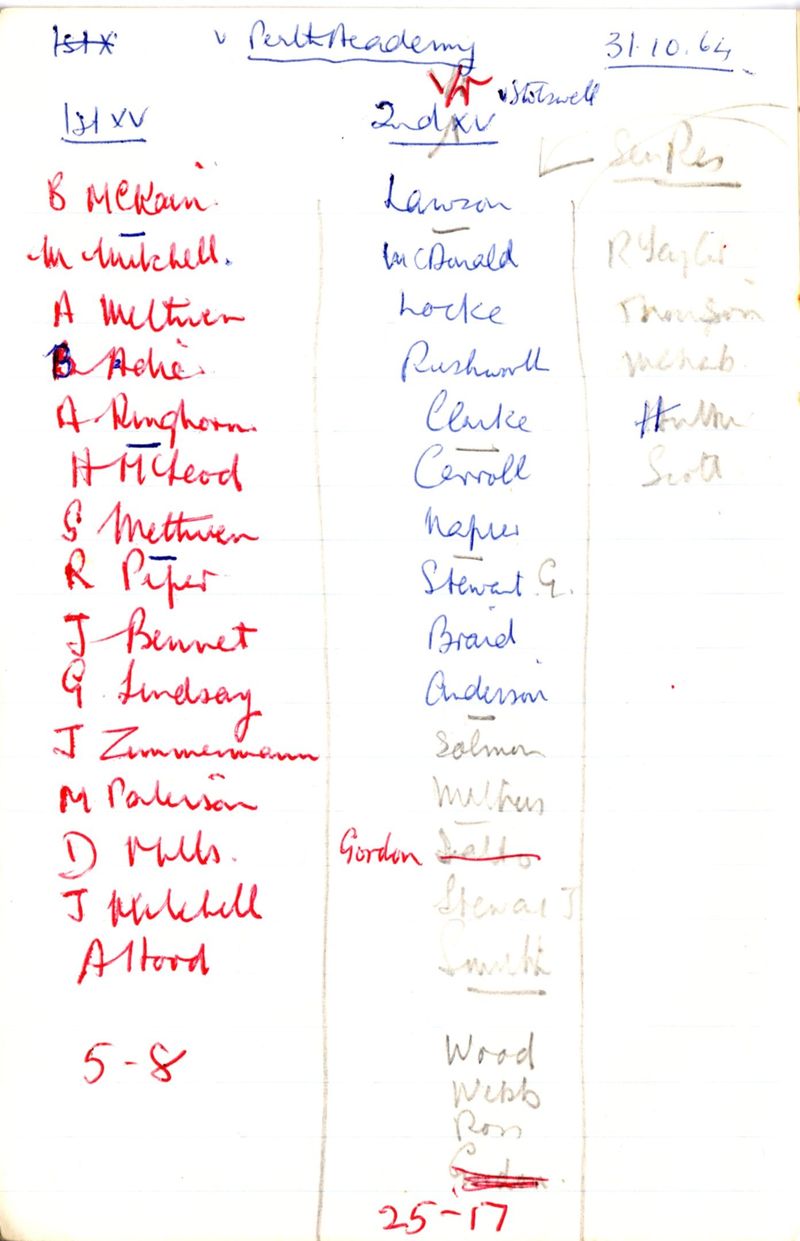 1st X v Perth Academy 31.10.64
v Stobswell
1st XV
B McKain
M Mitchell.
A Methven
B Adie
A Kinghorn
H McLeod
S Methven
R Piper
J Bennet
G Lindsay
J Zimmermann
M Paterson
D Mills.
J Mitchell
A Hood
5-8
2nd XV
Lawson
McDonald
Locke
Rushworth
Clarke
Carroll
Napier
Stewart G.
Braid
Anderson
Salmon
Methven
Gordon
Stewart J
Smith
Wood
Webb
Ross
Gordon
25-17
Sen Res
R Taylor
Thomson
McNab
Hutton
Scott